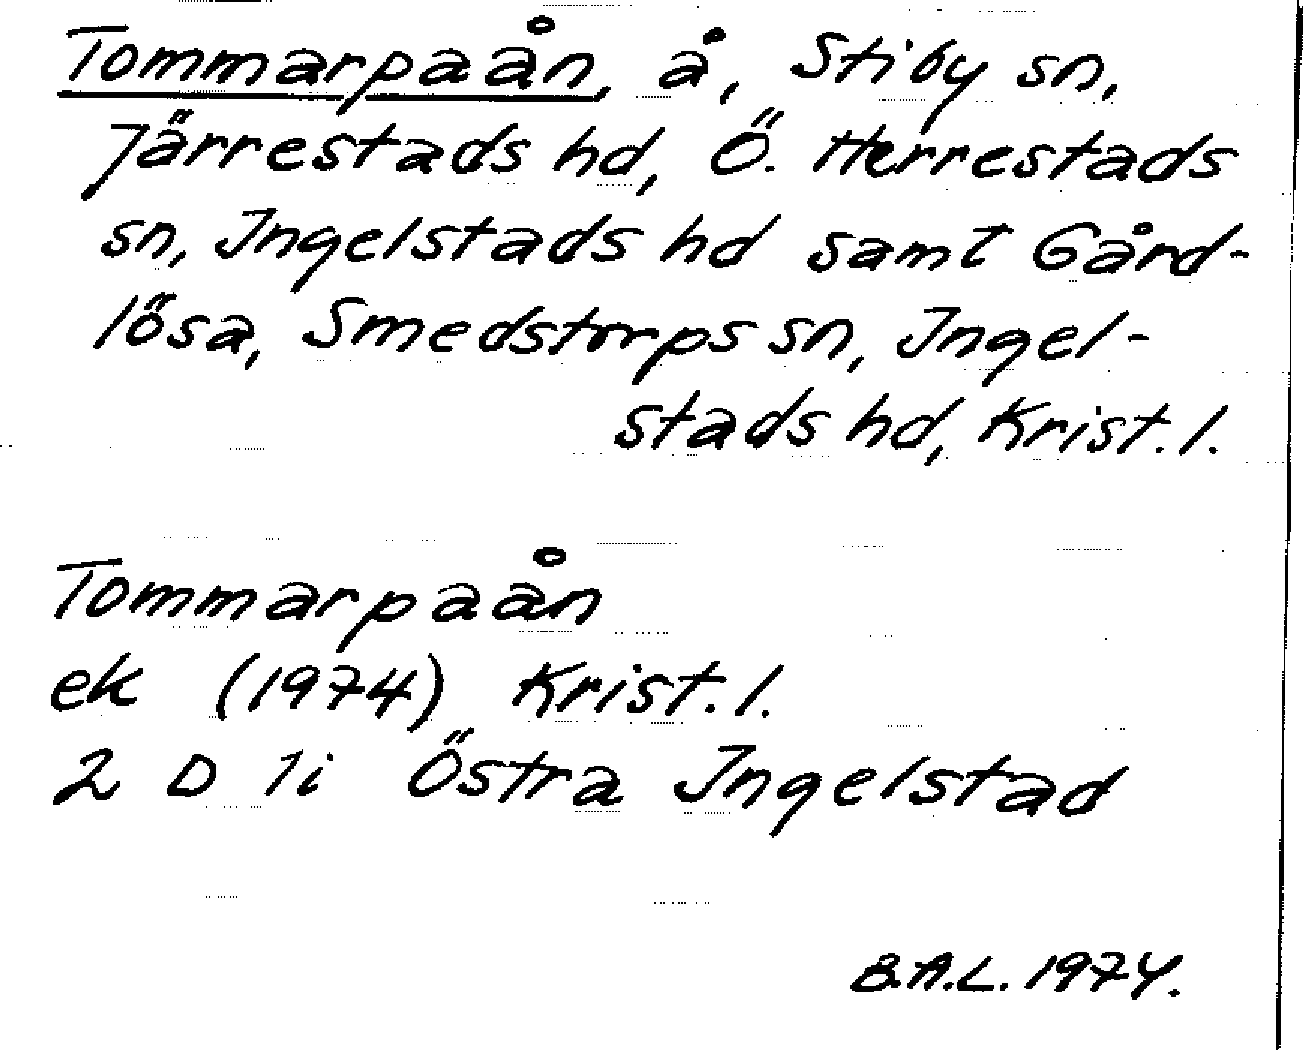 Tommarpaån, å, Stiby sn,
Järrestads hd, Ö. Herrestads
sn, Ingelstads hd samt Gård-
lösa, Smedstorps sn, Ingel-
stads hd, Krist. l.
Tommarpaån
ek (1974) Krist. l.
2 D 1i Östra Ingelstad
B.A.L. 1974.